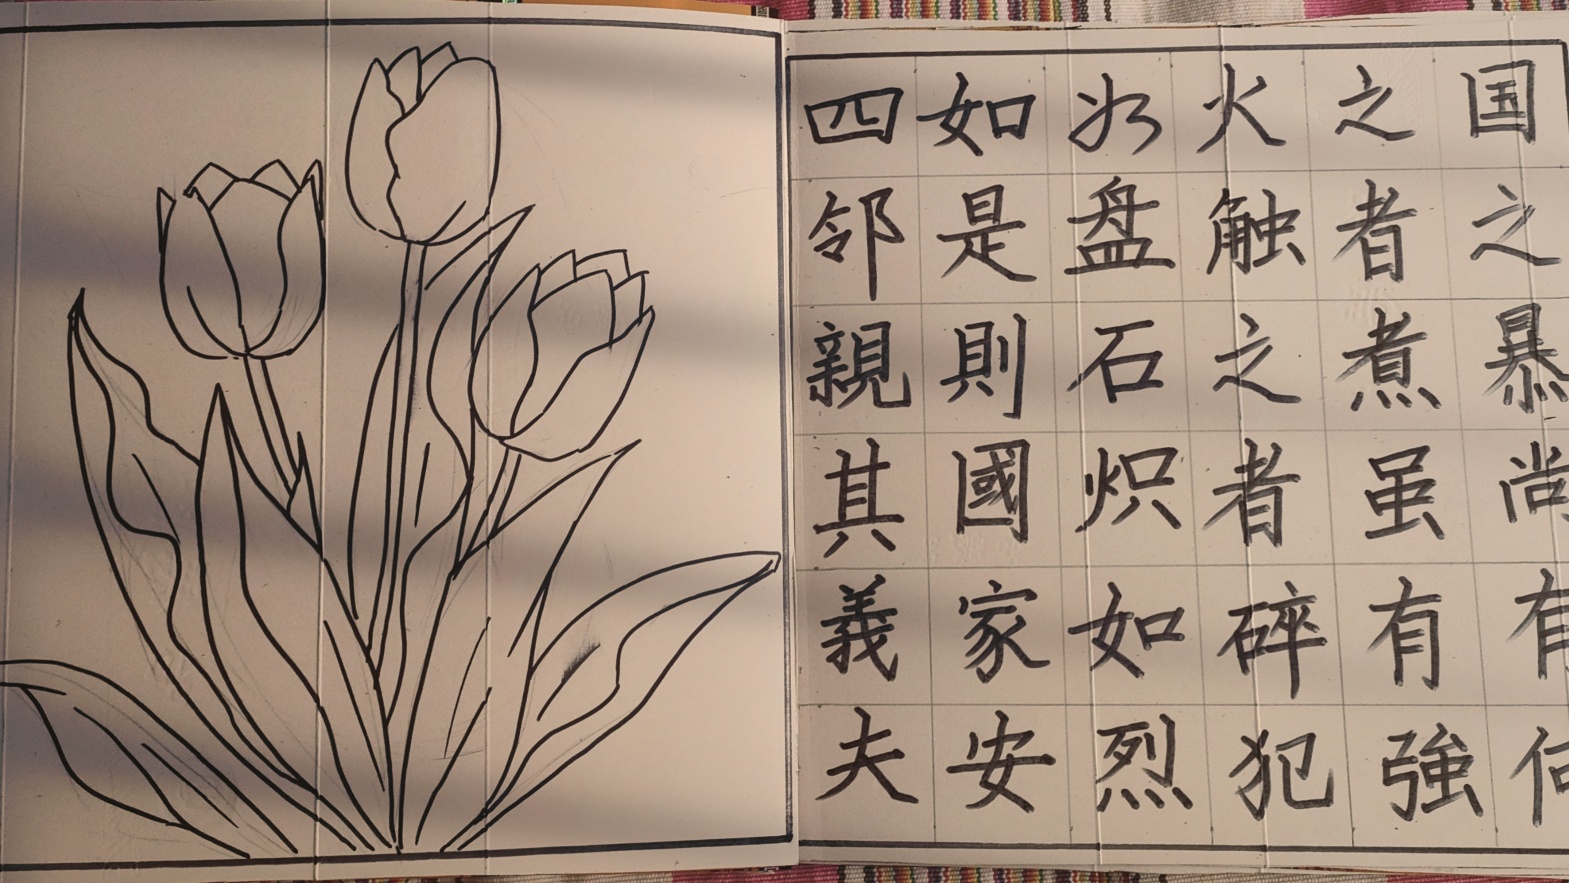 四邻親其義夫
如是則國家安
盘石炽如烈
火触之者碎犯
之者煮虽有強
国之暴尚有何